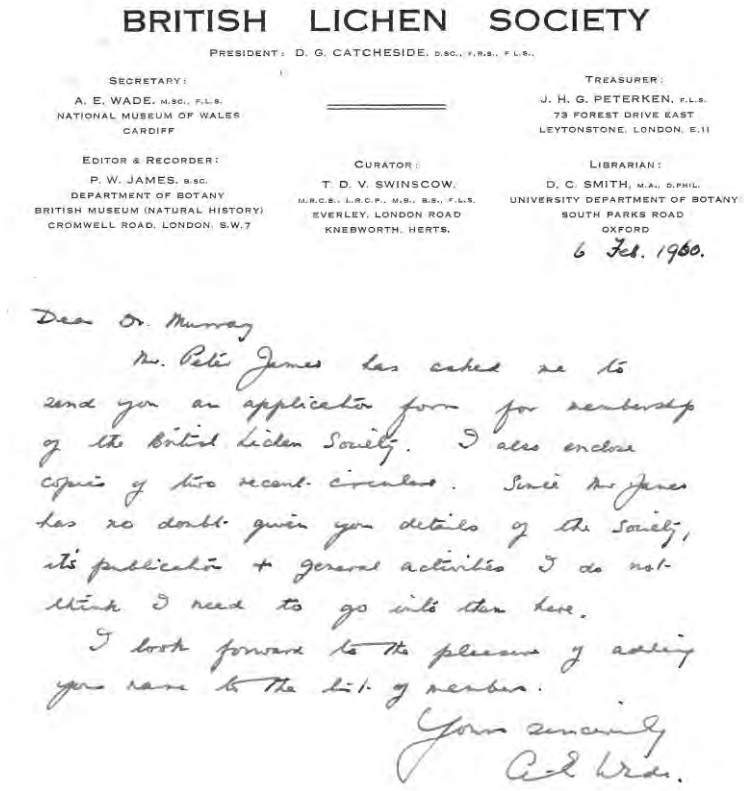 BRITISH LICHEN SOCIETY
PRESIDENT: D. G. CATCHESIDE, D.SC., F.R.S., F.L.S.,
SECRETARY:
A. E. WADE, M.SC., F.L.S.
NATIONAL MUSEUM OF WALES
CARDIFF
TREASURER:
J. H. G. PETERKEN, F.L.S.
73 FOREST DRIVE EAST
LEYTONSTONE, LONDON, E.11
EDITOR & RECORDER:
P. W. JAMES, B.SC.
DEPARTMENT OF BOTANY
BRITISH MUSEUM (NATURAL HISTORY)
CROMWELL ROAD, LONDON, S.W.7
CURATOR:
T. D. V. SWINSCOW,
M.R.C.S., L.R.C.P., M.B., B.S., F.L.S.
EVERLEY, LONDON ROAD
KNEBWORTH, HERTS.
LIBRARIAN:
D. C. SMITH, M.A., D.PHIL.
UNIVERSITY DEPARTMENT OF BOTANY
SOUTH PARKS ROAD
OXFORD
6 Feb. 1960.
Dear Dr. Murray
Mr. Peter James has asked me to
send you an application form for membership
of the British Lichen Society. I also enclose
copies of two recent circulars. Since Mr James
has no doubt given you details of the Society,
its publication + general activities I do not
think I need to go into them here.
I look forward to the pleasure of adding
your name to the list of members.
Yours sincerely
A. E. Wade.